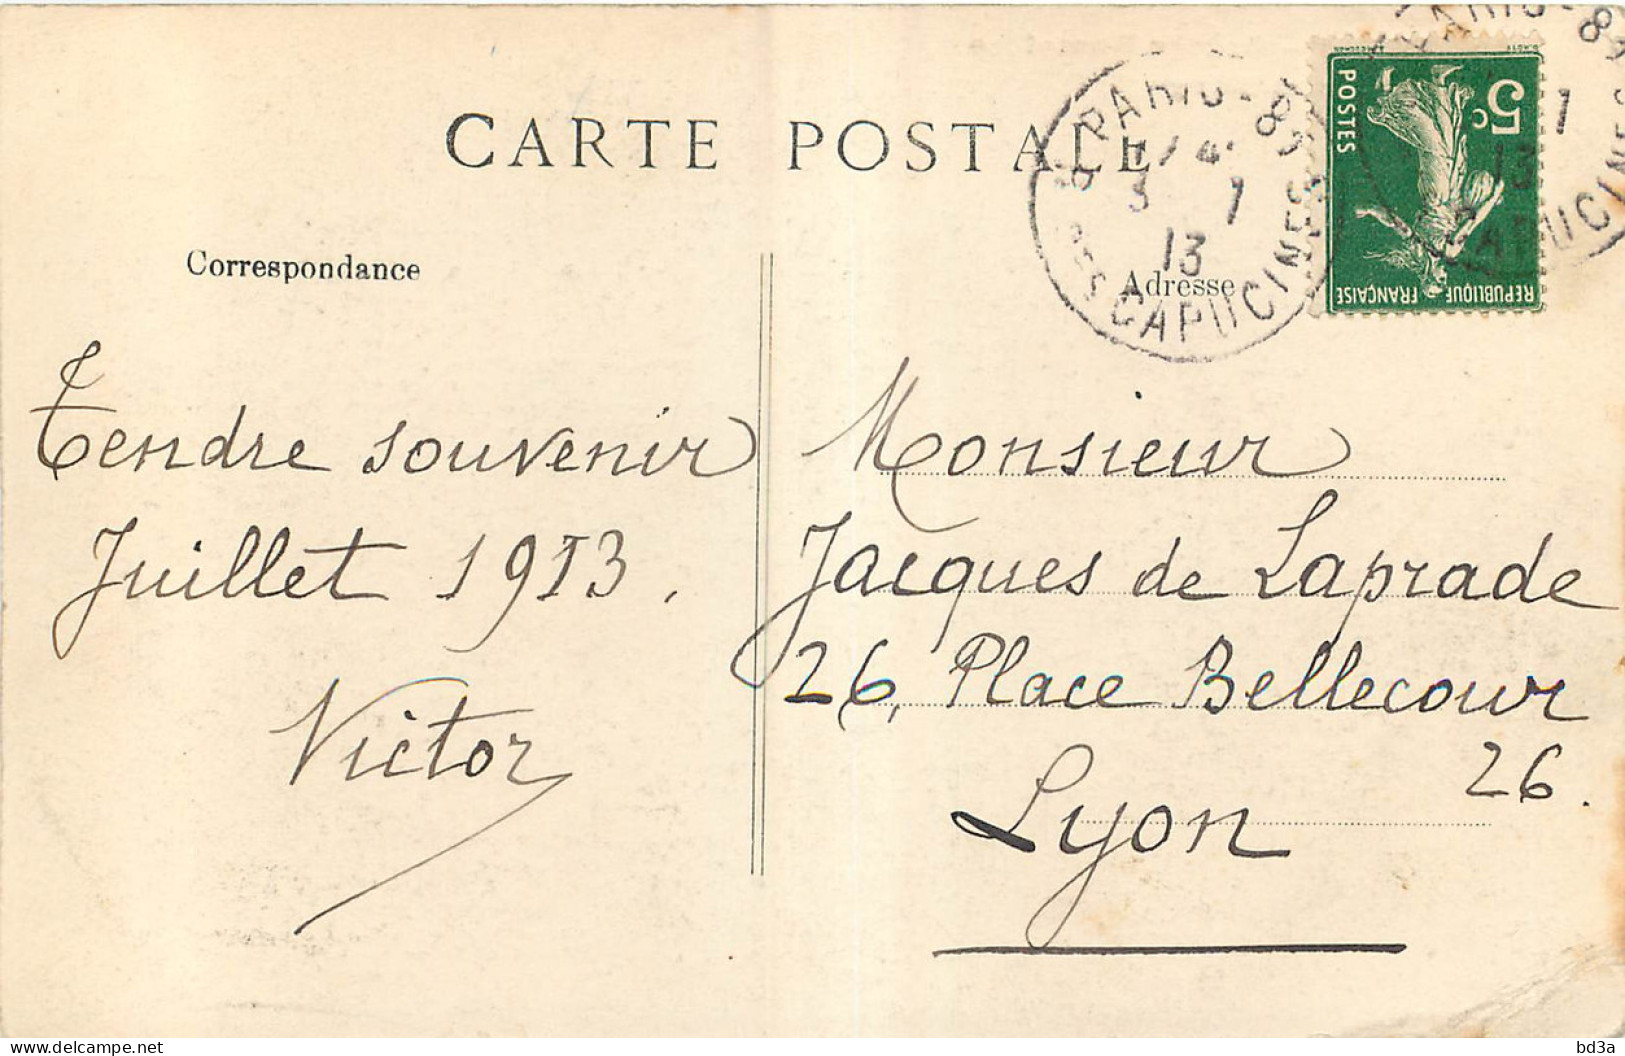 CARTE POSTALE
Correspondance
Adresse
PARIS - 89
3 7
13
CAPUCINES
PARIS - 89
13
CAPUCINES
POSTES
5c
REPUBLIQUE FRANÇAISE
Tendre souvenir
Juillet 1913.
Victor
Monsieur
Jacques de Laprade
26, Place Bellecour
26.
Lyon
bd3a